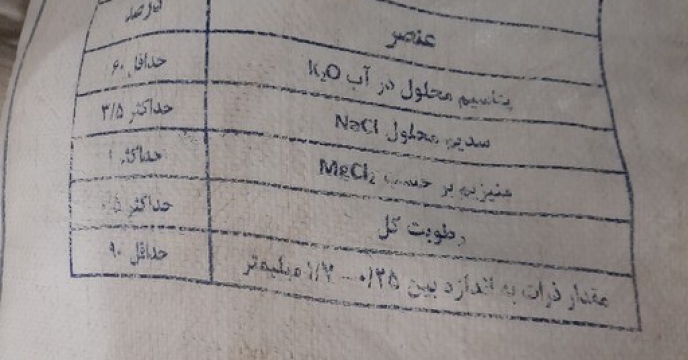 عنصر درصد
پتاسیم محلول در آب K₂O حداقل ۶۰
سدیم محلول NaCl حداکثر ۳/۵
منیزیم بر حسب MgCl₂ حداکثر
رطوبت کل حداکثر
مقدار ذرات به اندازه بین ۰/۲۵ – ۱/۷ میلیمتر حداقل ۹۰